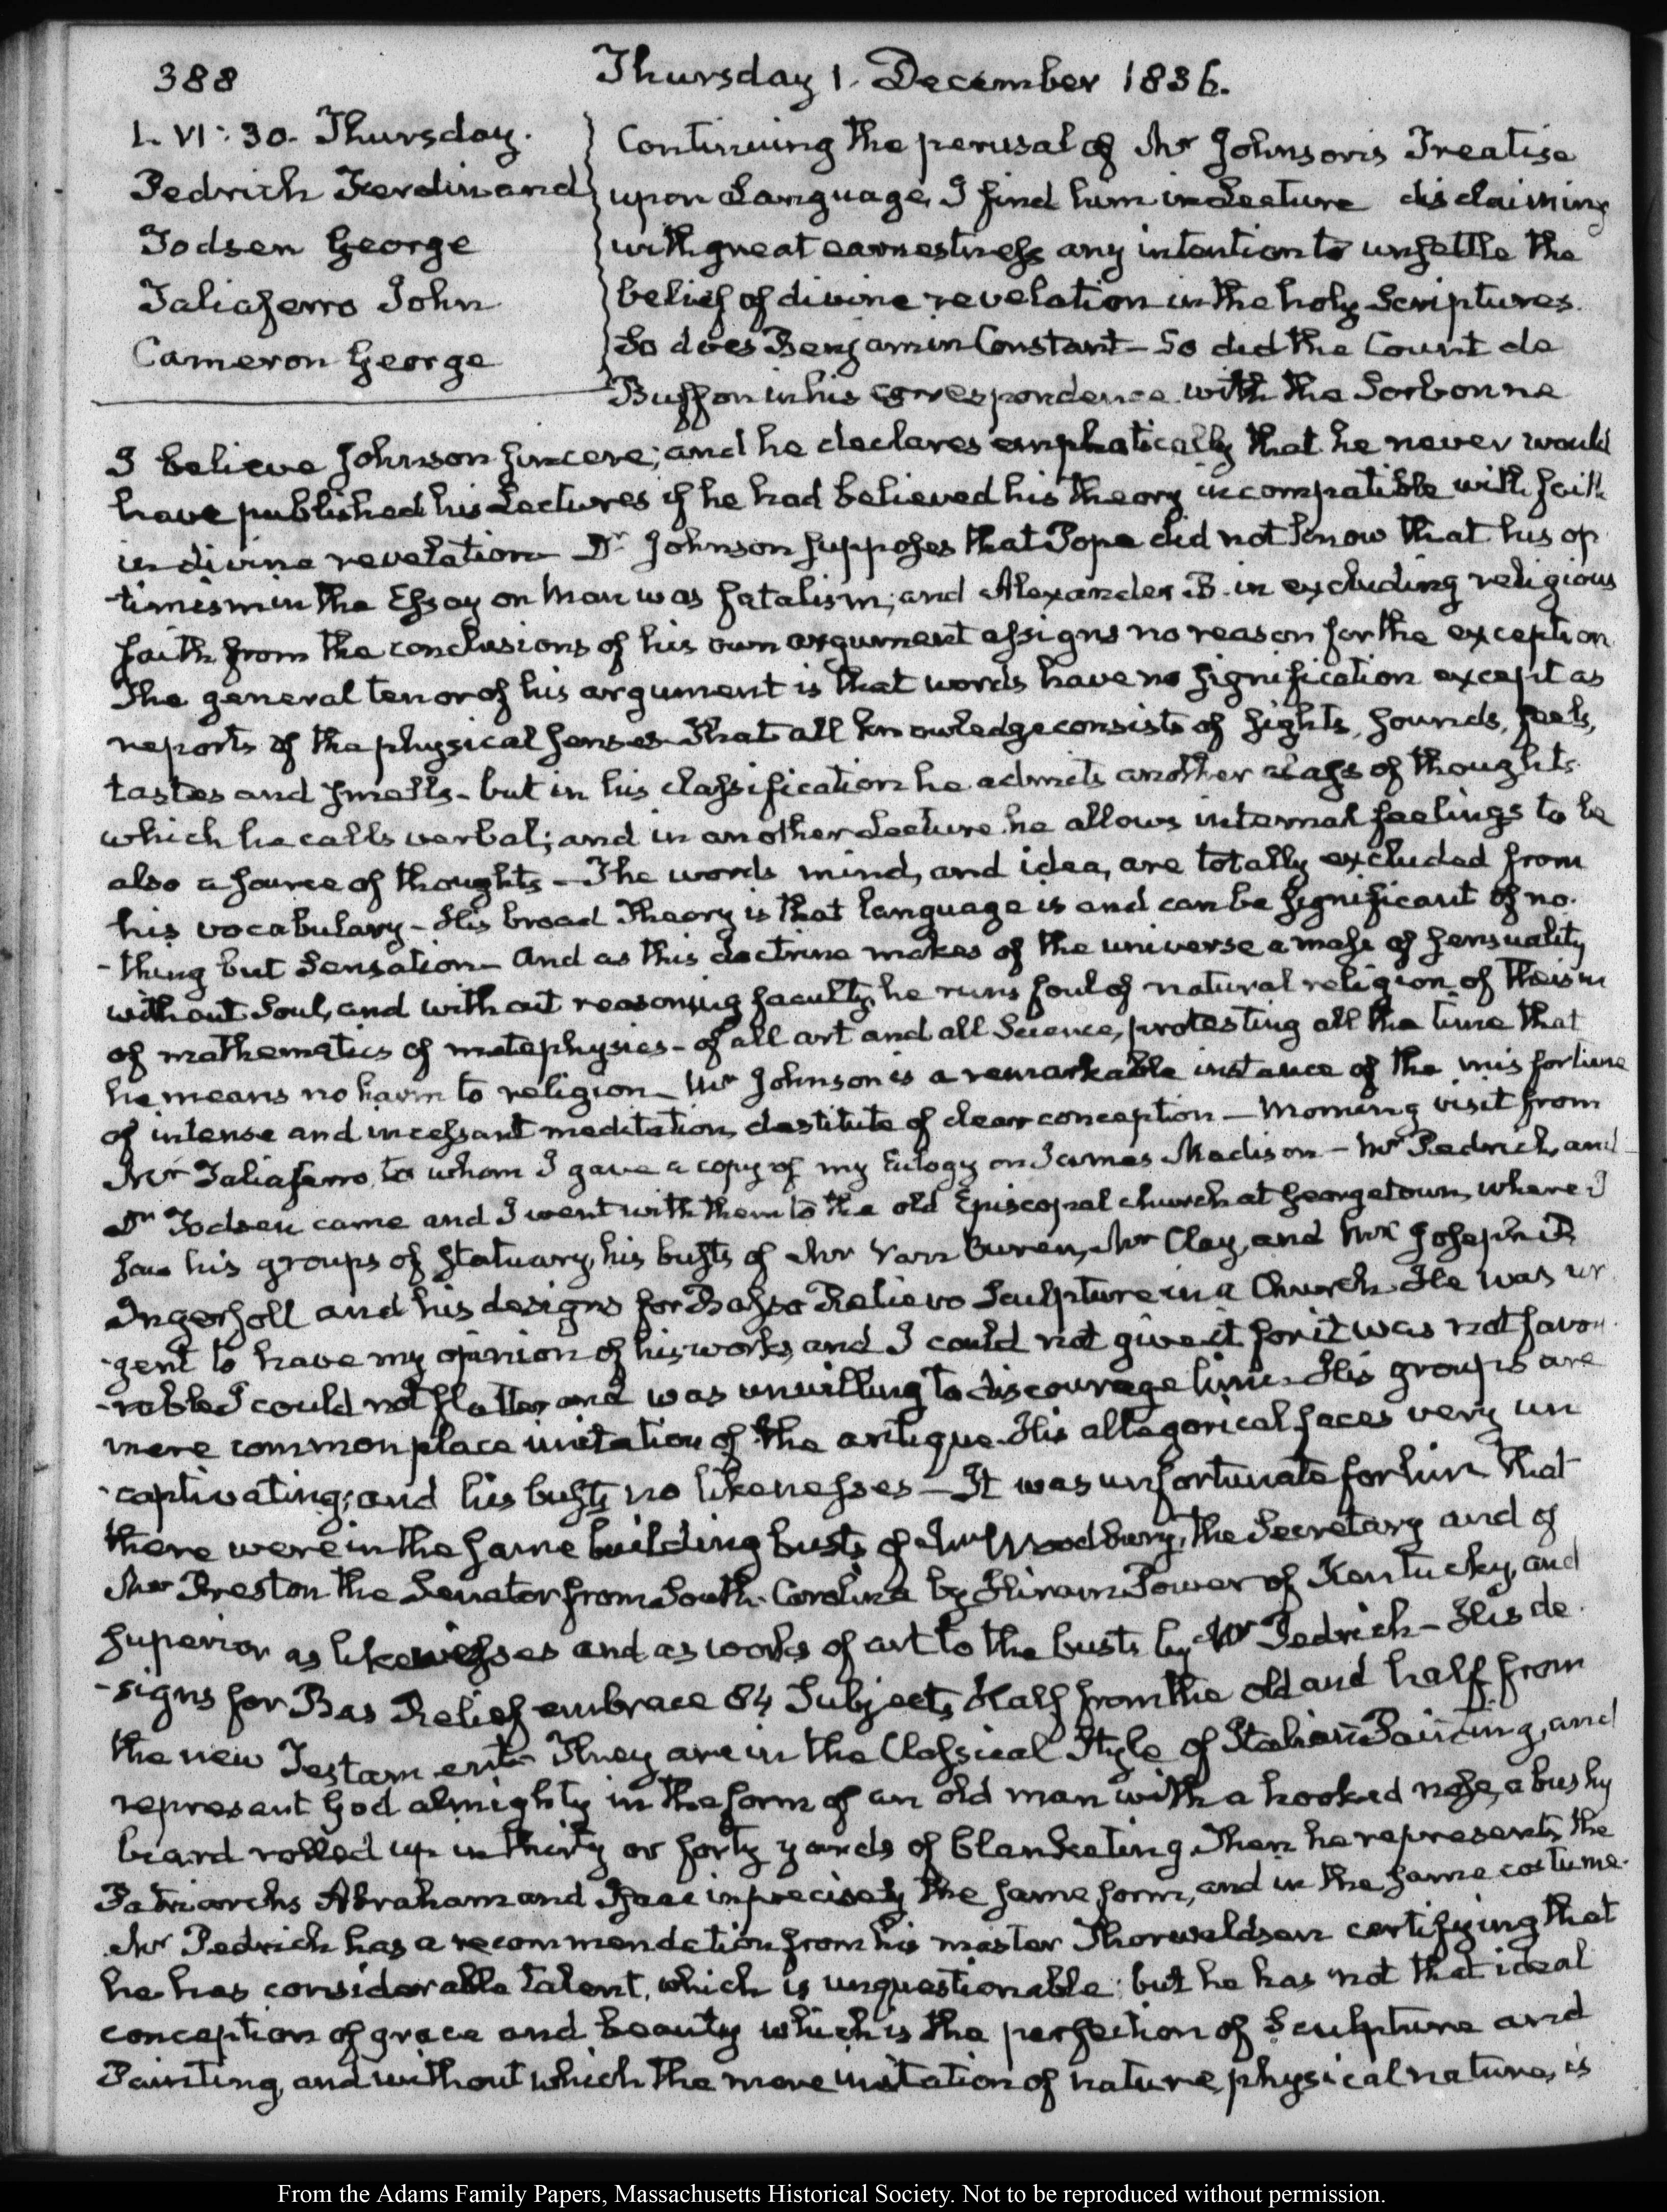 388
Thursday 1. December 1836.
1. VI: 30. Thursday.
Pedrich Ferdinand
Todsen George
Taliaferro John
Cameron George
Continuing the perusal of Mr Johnson's Treatise
upon Language, I find him in Lecture disclaiming
with great earnestness any intention to unsettle the
belief of divine revelation in the holy Scriptures.
So does Benjamin Constant — So did the Count de
Buffon in his correspondence with the Sorbonne
I believe Johnson sincere; and he declares emphatically that he never would
have published his Lectures if he had believed his theory incompatible with faith
in divine revelation — Dr Johnson supposes that Pope did not know that his op
-timism in the Essay on Man was fatalism; and Alexander B. in excluding religious
faith from the conclusions of his own argument assigns no reason for the exception
The general tenor of his argument is that words have no signification except as
reports of the physical senses — That all knowledge consists of sights, sounds, feels,
tastes and smells — but in his classification he admits another class of thoughts
which he calls verbal; and in another Lecture he allows internal feelings to be
also a source of thoughts — The words mind, and idea, are totally excluded from
his vocabulary — His broad Theory is that language is and can be significant of no-
-thing but Sensation — And as this doctrine makes of the universe a mass of sensuality
without Soul, and without reasoning faculty, he runs foul of natural religion of theism
of mathematics of metaphysics — of all art and all Science, protesting all the time that
he means no harm to religion — Mr Johnson is a remarkable instance of the misfortune
of intense and incessant meditation, destitute of clear conception — Morning visit from
Mr Taliaferro, to whom I gave a copy of my Eulogy on James Madison — Mr Pedrich, and
Dr Todsen came and I went with them to the old Episcopal church at Georgetown, where I
saw his groups of Statuary, his busts of Mr Van Buren, Mr Clay, and Mr Joseph R.
Ingersoll and his designs for Basso Relievo Sculpture in a Church. He was ur
-gent to have my opinion of his works, and I could not give it for it was not favou-
-rable I could not flatter and was unwilling to discourage him. His groups are
mere common place imitation of the antique. His allegorical faces very un
-captivating; and his busts no likenesses — It was unfortunate for him that
there were in the same building busts of Mr Woodbury, the Secretary and of
Mr Preston the Senator from South-Carolina by Hiram Power of Kentucky, and
superior as likenesses and as works of art to the busts by Mr Pedrich — His de-
-signs for Bas Relief embrace 84 Subjects, Half from the old and half from
the new Testament. They are in the Classical Style of Italian Painting, and
represent God almighty in the form of an old man with a hooked nose, a bushy
beard rolled up in thirty or forty yards of blanketing. Then he represents the
Patriarchs Abraham and Isaac in precisely the same form, and in the same costume.
Mr Pedrich has a recommendation from his master Thorwaldsen certifying that
he has considerable talent, which is unquestionable: but he has not that ideal
conception of grace and beauty which is the perfection of Sculpture and
Painting, and without which the mere imitation of nature, physical nature, is
From the Adams Family Papers, Massachusetts Historical Society. Not to be reproduced without permission.